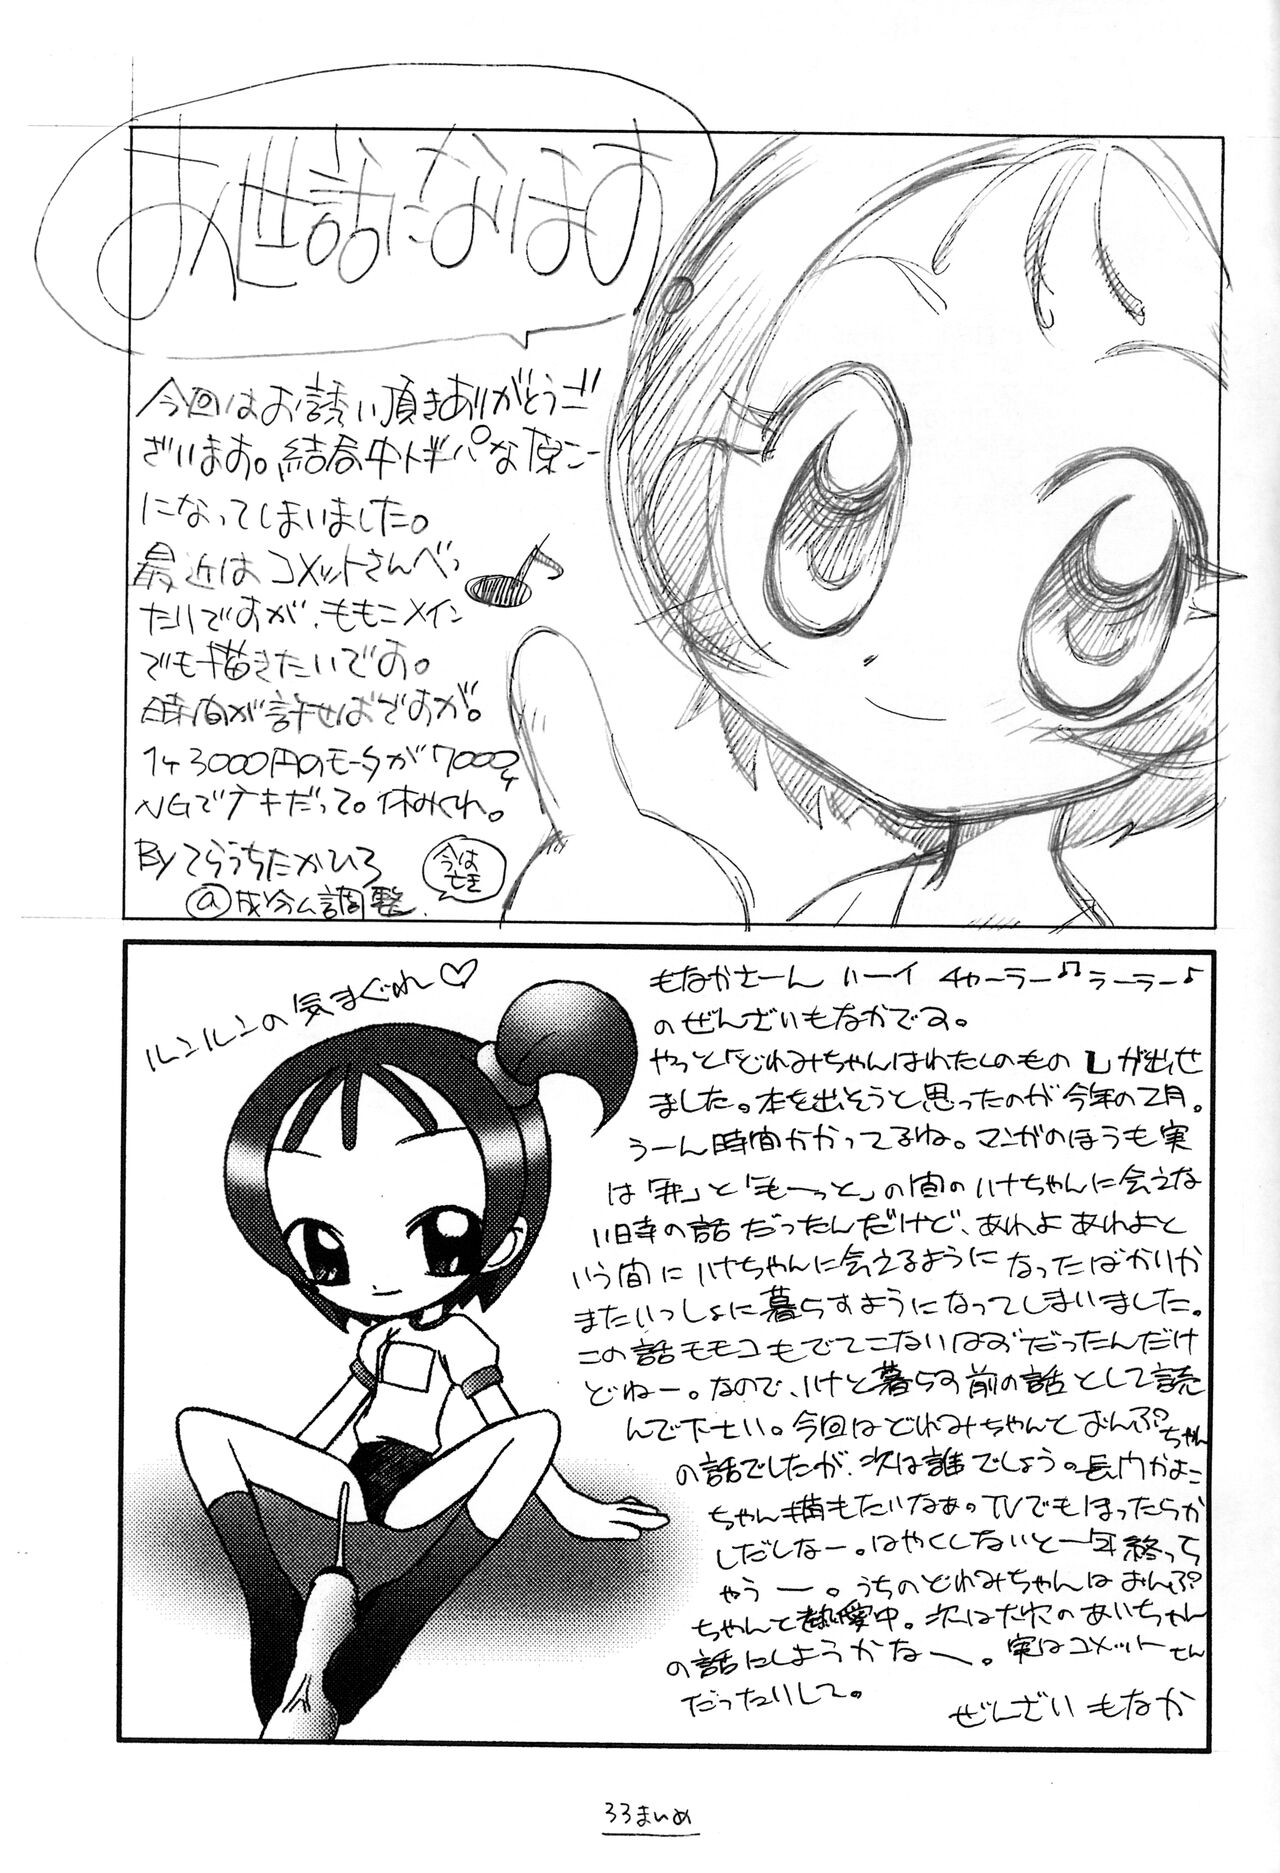 お世話になります
今回はお誘い頂きありがとうご
ざいます。結局ギトギパな原こー
になってしまいました。
最近はコメットさんべっ
たりですが、ももこメイン
でも描きたいです。
時間が許せばですが。
1ヶ3000円のモータが7000ヶ
NGでナキだって。休みくれ。
By てらうちたかひろ
@成分ム調整.
今は
亡き
ルンルンの気まぐれ♡
もなかさーん ハーイ チャーラー♫ラーラー♪
のぜんざいもなかです。
やっと「どれみちゃんはわたしのもの」が出せ
ました。本を出そうと思ったのが今年の2月。
うーん時間かかってるね。マンガのほうも実
は「#」と「も〜っと」の間のハナちゃんに会えな
い時の話だったんだけど、あれよあれよと
いう間にハナちゃんに会えるようになったばかりか
またいっしょに暮らすようになってしまいました。
この話モモコもでてこないはずだったんだけ
どねー。なので、ハナと暮らす前の話として読
んで下さい。今回はどれみちゃんとおんぷちゃん
の話でしたが、次は誰でしょう。長門かよこ
ちゃん描もたいなぁ。TVでもほったらか
しだしなー。はやくしないと一年終っち
ゃうー。うちのどれみちゃんはおんぷ
ちゃんと熱愛中。次はだれのあいちゃん
の話にしようかなー。実はコメットさん
だったりして。
ぜんざいもなか
33まいめ